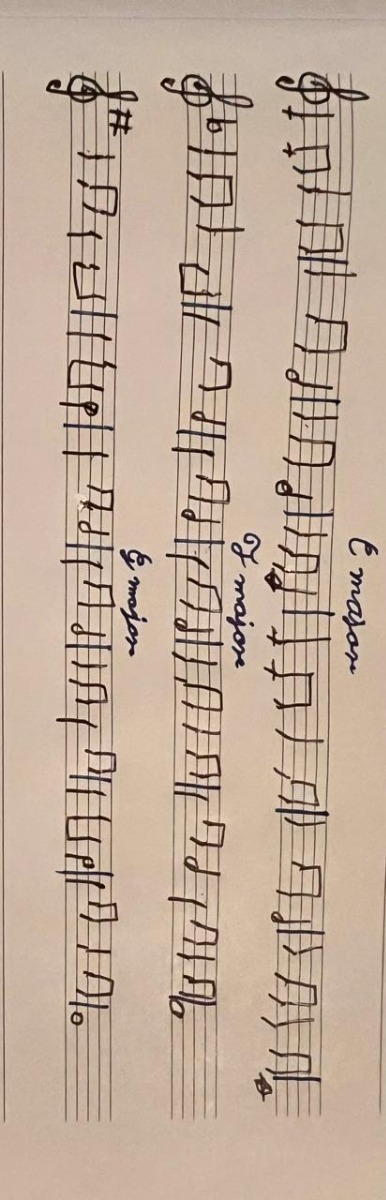 C major
F major
G major